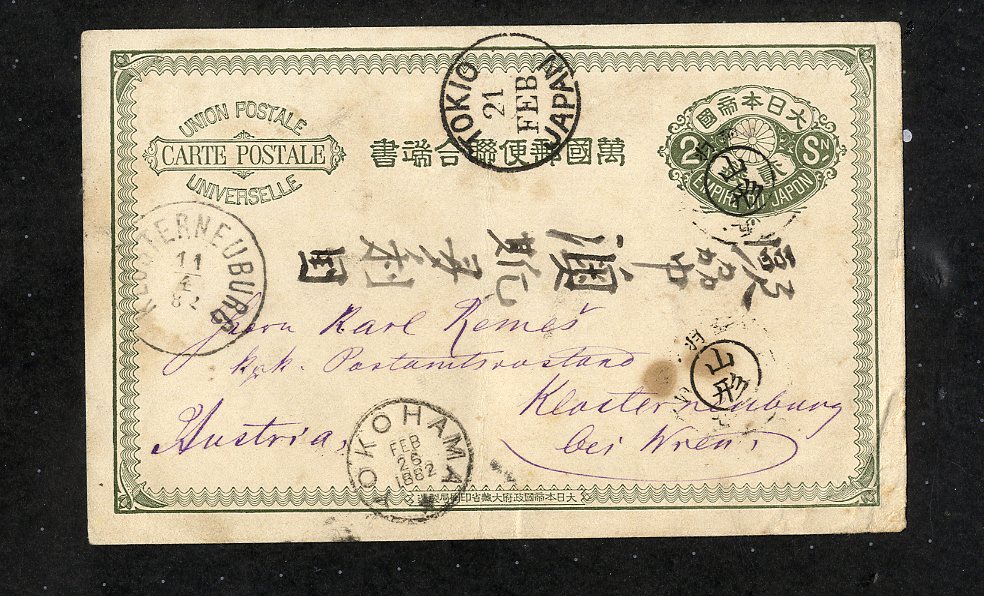 UNION POSTALE
CARTE POSTALE
UNIVERSELLE
書端合聯便郵國萬
TOKIO
21
FEB
JAPAN
大日本帝國
2 SN
EMPIRE DU JAPON
山形
KLOSTERNEUBURG
11
4
82
澳
国利
Herrn Karl Remeš
k. k. Postamtsvorstand
Klosterneuburg
bei Wien
Austria
山形
YOKOHAMA
FEB
26
1882
大日本帝國政府大藏省印刷局製造